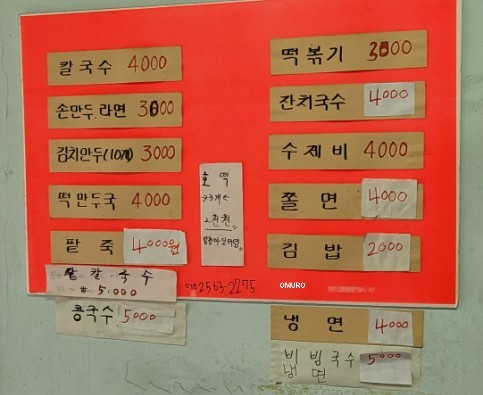 칼국수 4000
손만두.라면 3000
김치만두(10개) 3000
떡만두국 4000
팥죽 4000원
팥칼국수
# 5.000
콩국수 5000
호떡
2천원
떡볶기 3000
잔치국수 4000
수제비 4000
쫄면 4000
김밥 2000
010 2563-2275
OMURO
냉면 4000
비빔국수 5000
냉면